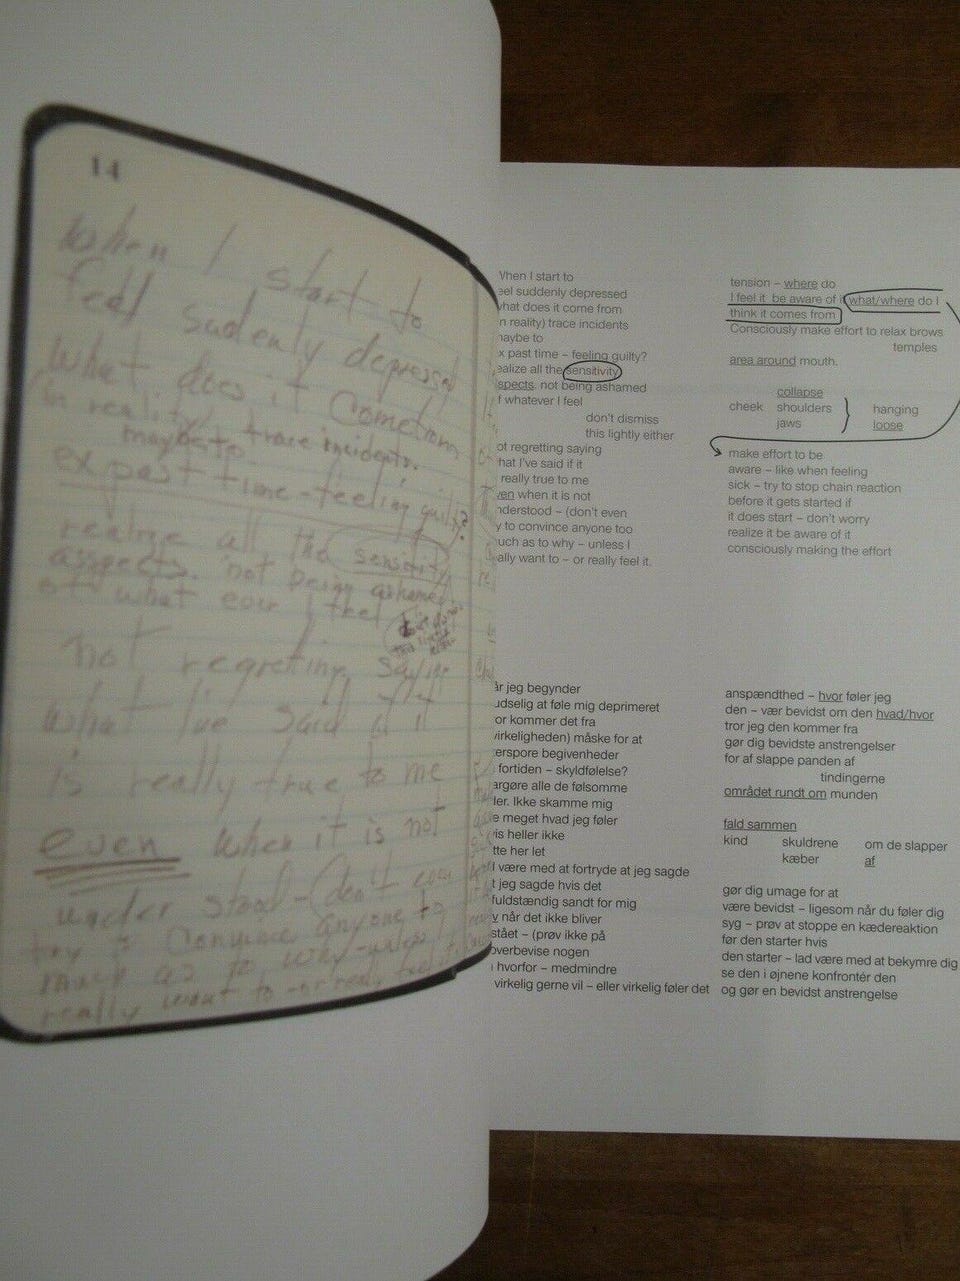 14
When I start to
feel sudenly depressed
what does it come from
(in reality) trace incidents.
maybe to
ex past time - feeling guilty?
realize all the sensitivity
asspects. not being ashamed
of what ever I feel
not regreting saying
what I've said if it
is really true to me
even when it is not
under stood - (don't even
try to convince anyone to
much as to why - unless I
really want to - or really feel it
When I start to
eel suddenly depressed
hat does it come from
n reality) trace incidents
aybe to
x past time – feeling guilty?
ealize all the sensitivity
spects. not being ashamed
f whatever I feel
don't dismiss
this lightly either
ot regretting saying
hat I've said if it
really true to me
ven when it is not
nderstood – (don't even
y to convince anyone too
uch as to why – unless I
ally want to – or really feel it.
tension – where do
I feel it be aware of it what/where do I
think it comes from
Consciously make effort to relax brows
temples
area around mouth.
collapse
cheek shoulders hanging
jaws loose
make effort to be
aware – like when feeling
sick – try to stop chain reaction
before it gets started if
it does start – don't worry
realize it be aware of it
consciously making the effort
år jeg begynder
udselig at føle mig deprimeret
or kommer det fra
virkeligheden) måske for at
terspore begivenheder
fortiden – skyldfølelse?
argøre alle de følsomme
ler. Ikke skamme mig
e meget hvad jeg føler
vis heller ikke
tte her let
l være med at fortryde at jeg sagde
t jeg sagde hvis det
fuldstændig sandt for mig
v når det ikke bliver
stået – (prøv ikke på
overbevise nogen
hvorfor – medmindre
virkelig gerne vil – eller virkelig føler det
anspændthed – hvor føler jeg
den – vær bevidst om den hvad/hvor
tror jeg den kommer fra
gør dig bevidste anstrengelser
for af slappe panden af
tindingerne
området rundt om munden
fald sammen
kind skuldrene om de slapper
kæber af
gør dig umage for at
være bevidst – ligesom når du føler dig
syg – prøv at stoppe en kædereaktion
før den starter hvis
den starter – lad være med at bekymre dig
se den i øjnene konfrontér den
og gør en bevidst anstrengelse